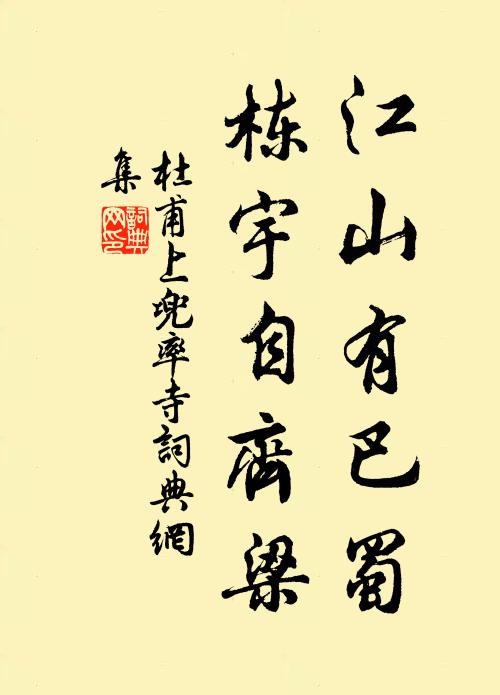 江山有巴蜀
栋宇自齊梁
杜甫上兜率寺詞典網
集
詞典
网印